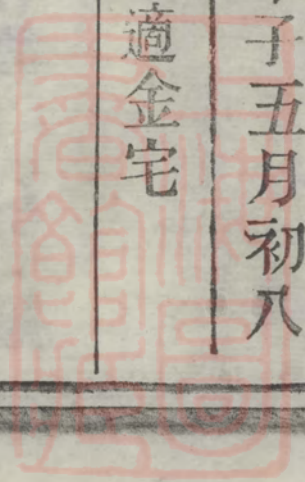 子五月初八
適金宅